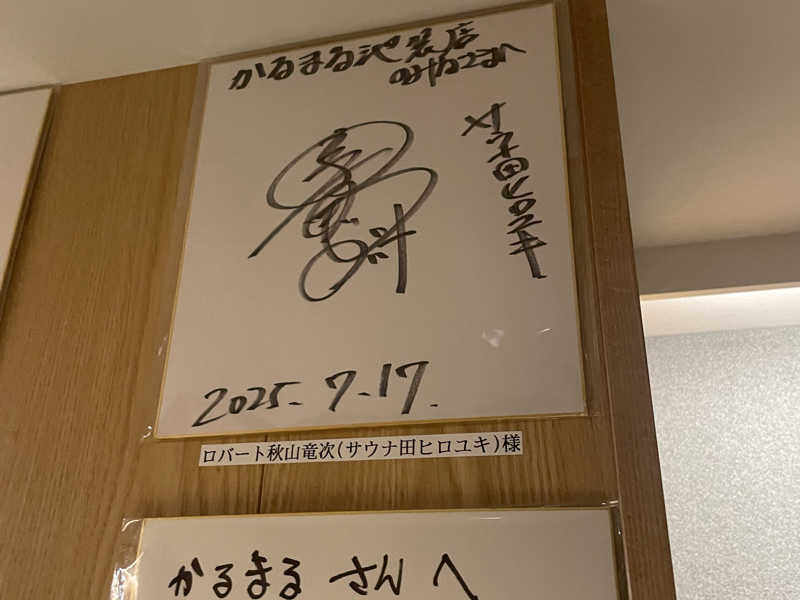 かるまる池袋店
のみなさまへ
サウナ田ヒロユキ
2025.7.17.
ロバート秋山竜次(サウナ田ヒロユキ)様
かるまる さんへ